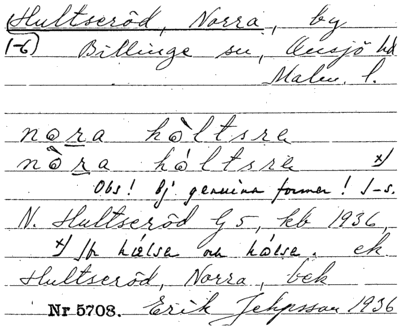 Hultseröd, Norra, by
1-6) Billinge sn, Onsjö hd
Malm. l.
nora hòltsre
nòra hóltsre x)
Obs! Ej genuina former! J-s.
N. Hultseröd G5, kb 1936,
x) Jfr hælsa och hålsa. ek
Hultseröd, Norra, bek
Nr 5708. Erik Jeppsson 1936